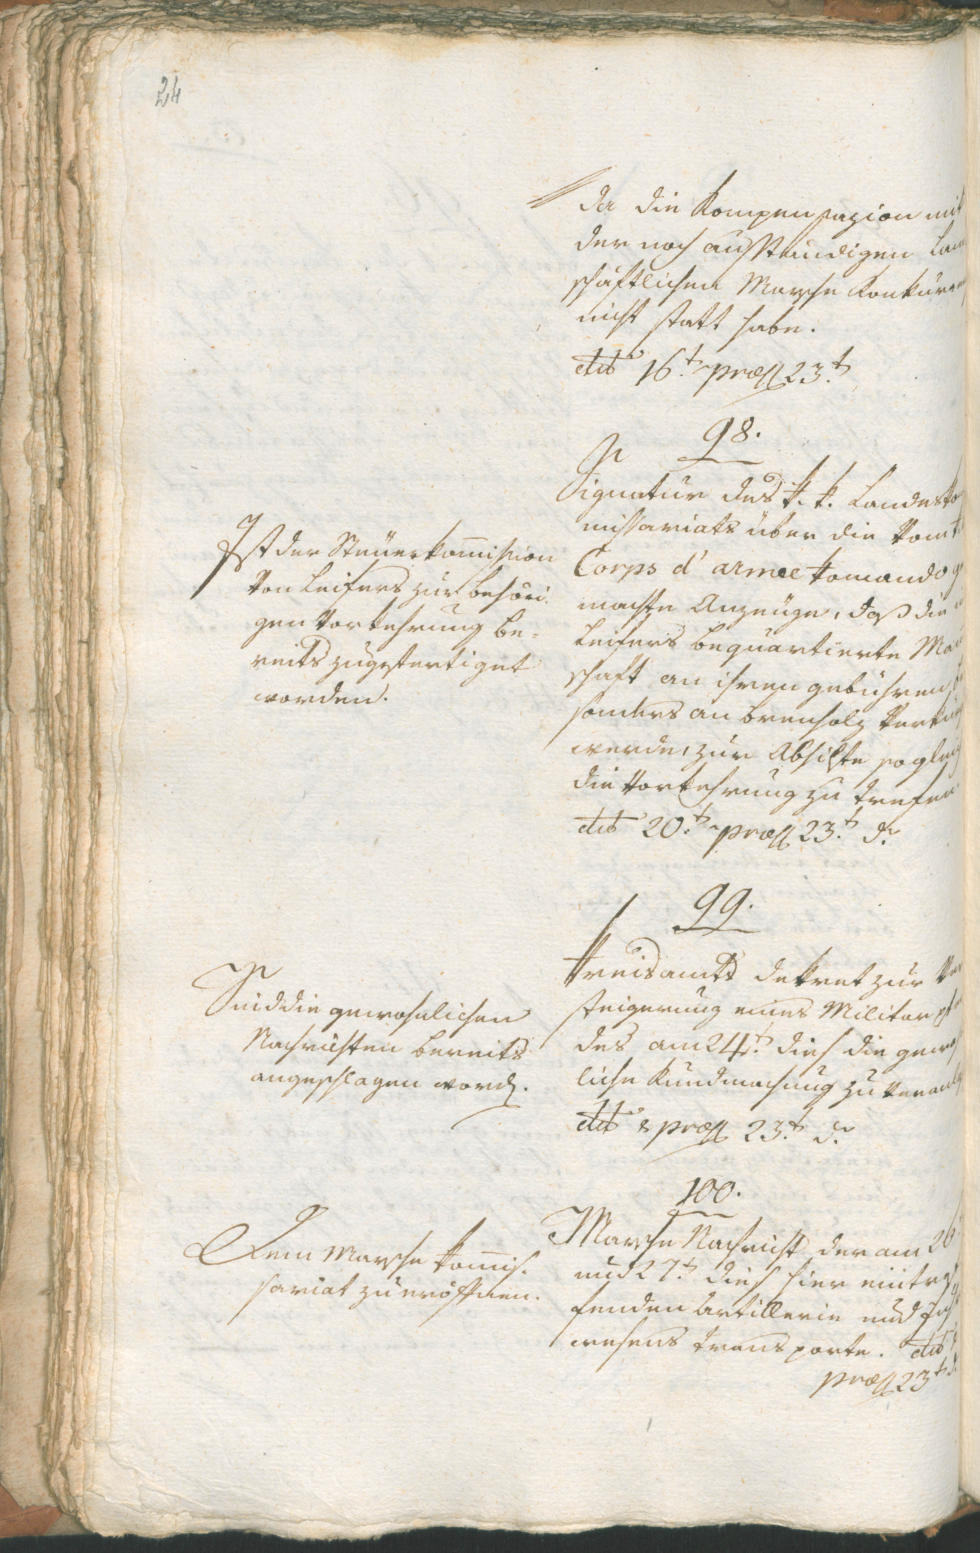 24
da die Kompensazion mit
der noch ausständigen Lan
schäftlichen Marsche Konkuren
nicht statt habe.
dtto 16.t præss 23.t
98.
Signatur des k. k. Landesko
missariats über die vom k
Corps d'armee komando g
machte Anzeuge, daß die
Leifers bequartierte Ma
schaft an ihren gebühren, be
sonders an brenholz verkür
werde, zur Absichte sogleich
die Vorkehrung zu trefen
dtto 20.t præss 23.t d.
Ist der Steüerkom̄ission
von Leifers zur behöri
gen Vorkehrung be-
reits zugefertiget
worden.
99.
Kreisamts dekret zur Ver
steigerung eines Militar pfer
des am 24.t dieß die gewöh
liche Kundmachung zu veranla
dtto & præss 23.t d.
Sind die gewohnlichen
Nachrichten bereits
angeschlagen word.
100.
Marsche Nachricht der am 26
und 27.t dieß hier eintref
fenden Artillerie und Fuh
wesens transporte. dtto
præss 23.t
Dem Marsche kom̄is-
sariat zu eröffnen.